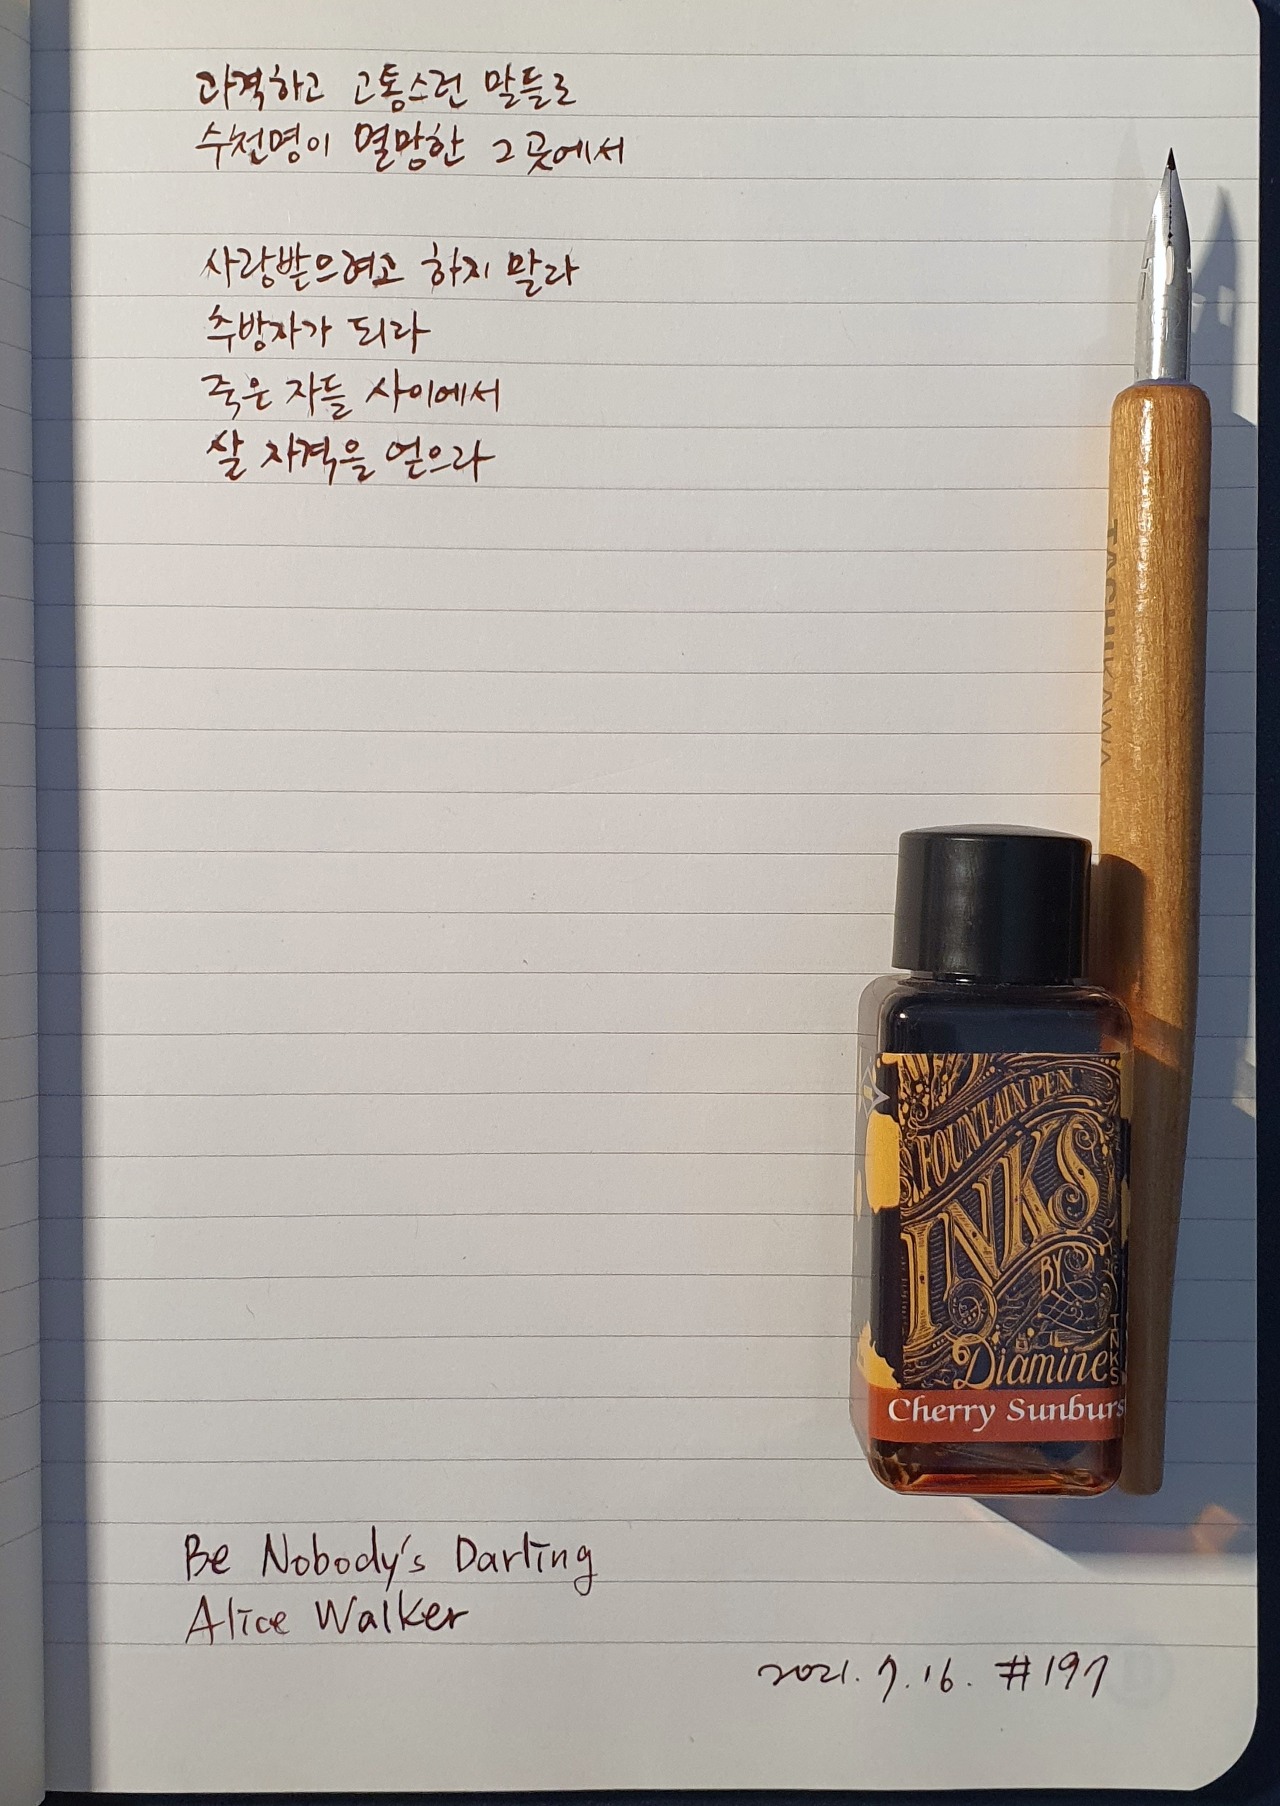 과격하고 고통스런 말들로
수천명이 멸망한 그 곳에서
사랑받으려고 하지 말라
추방자가 되라
죽은 자들 사이에서
살 자격을 얻으라
TACHIKAWA
FOUNTAIN PEN
INKS
BY
Diamine
INKS
Cherry Sunburs
Be Nobody's Darling
Alice Walker
2021. 7. 16. #197